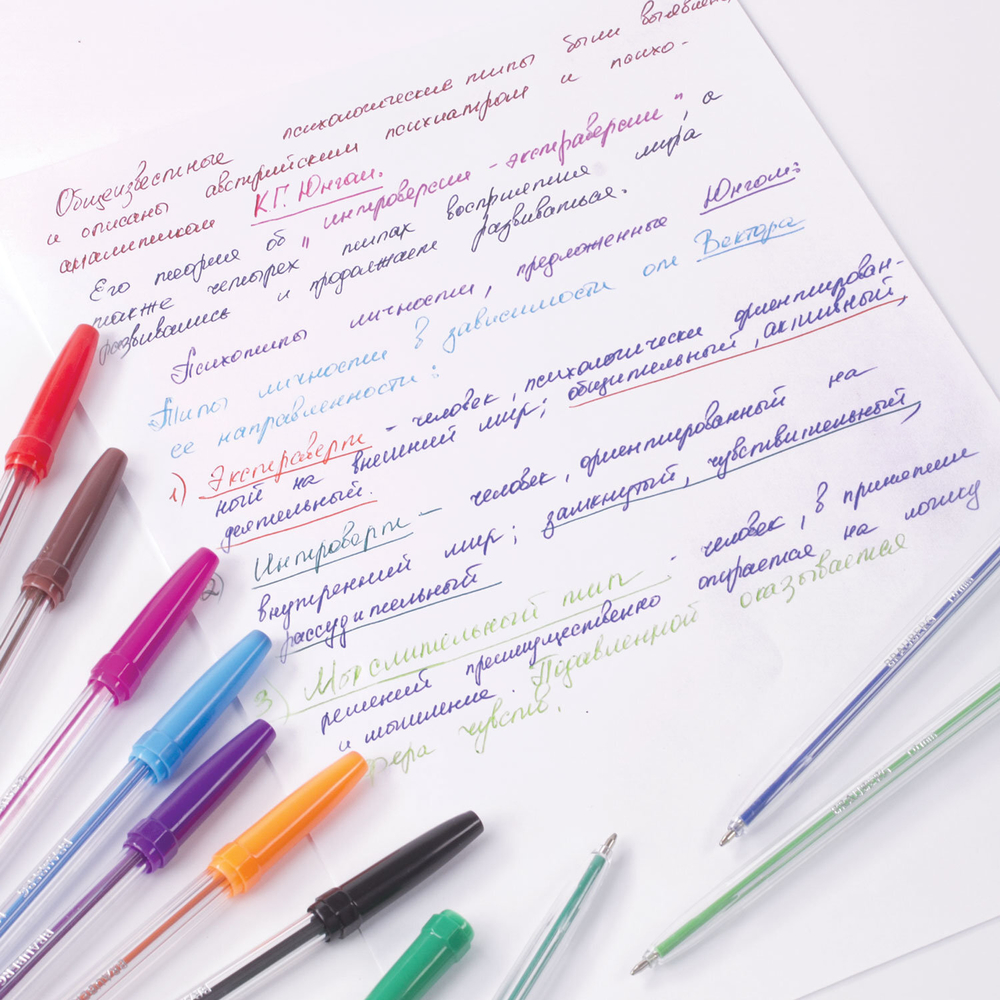 Общеизвестные психологические типы были выявлены
и описаны австрийским психиатром и психо-
аналитиком К.Г. Юнгом.
Его теория об "интроверсии - экстраверсии", а
также четырех типах восприятия мира
развивались и продолжает развиваться.
Психотипы личности, предложенные Юнгом:
Типы личности в зависимости от Вектора
ее направленности:
1) Экстраверт - человек, психологически ориентирован-
ный на внешний мир; общительный, активный,
деятельный.
2) Интроверт - человек, ориентированный на
внутренний мир; замкнутый, чувствительный,
рассудительный
3) Мыслительный тип - человек, в принятии
решений преимущественно опирается на логику
и мышление. Подавленной оказывается
сфера чувств.